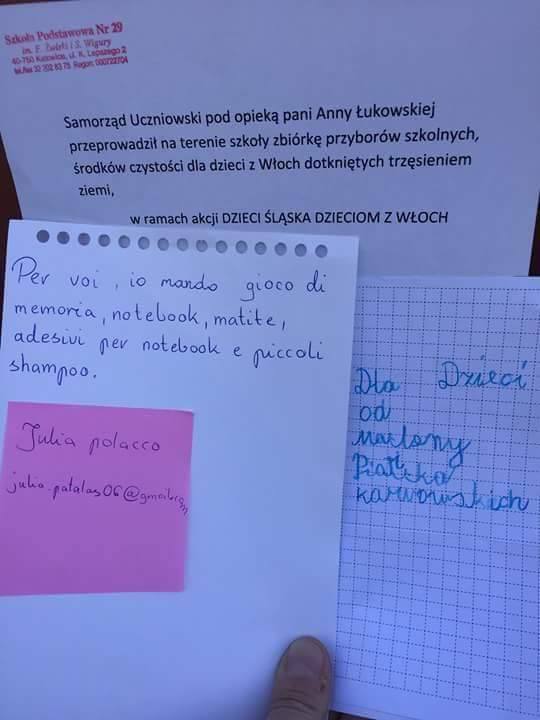 Szkoła Podstawowa Nr 29
im. F. Żwirki i S. Wigury
40-750 Katowice, ul. K. Lepszego 2
tel./fax 32 202 83 75 Regon: 000722704
Samorząd Uczniowski pod opieką pani Anny Łukowskiej
przeprowadził na terenie szkoły zbiórkę przyborów szkolnych,
środków czystości dla dzieci z Włoch dotkniętych trzęsieniem
ziemi,
w ramach akcji DZIECI ŚLĄSKA DZIECIOM Z WŁOCH
Per voi, io mando gioco di
memoria, notebook, matite,
adesivi per notebook e piccoli
shampoo.
Julia polacco
julia.patalas06@gmail.com
Dla Dzieci
od
Piątka